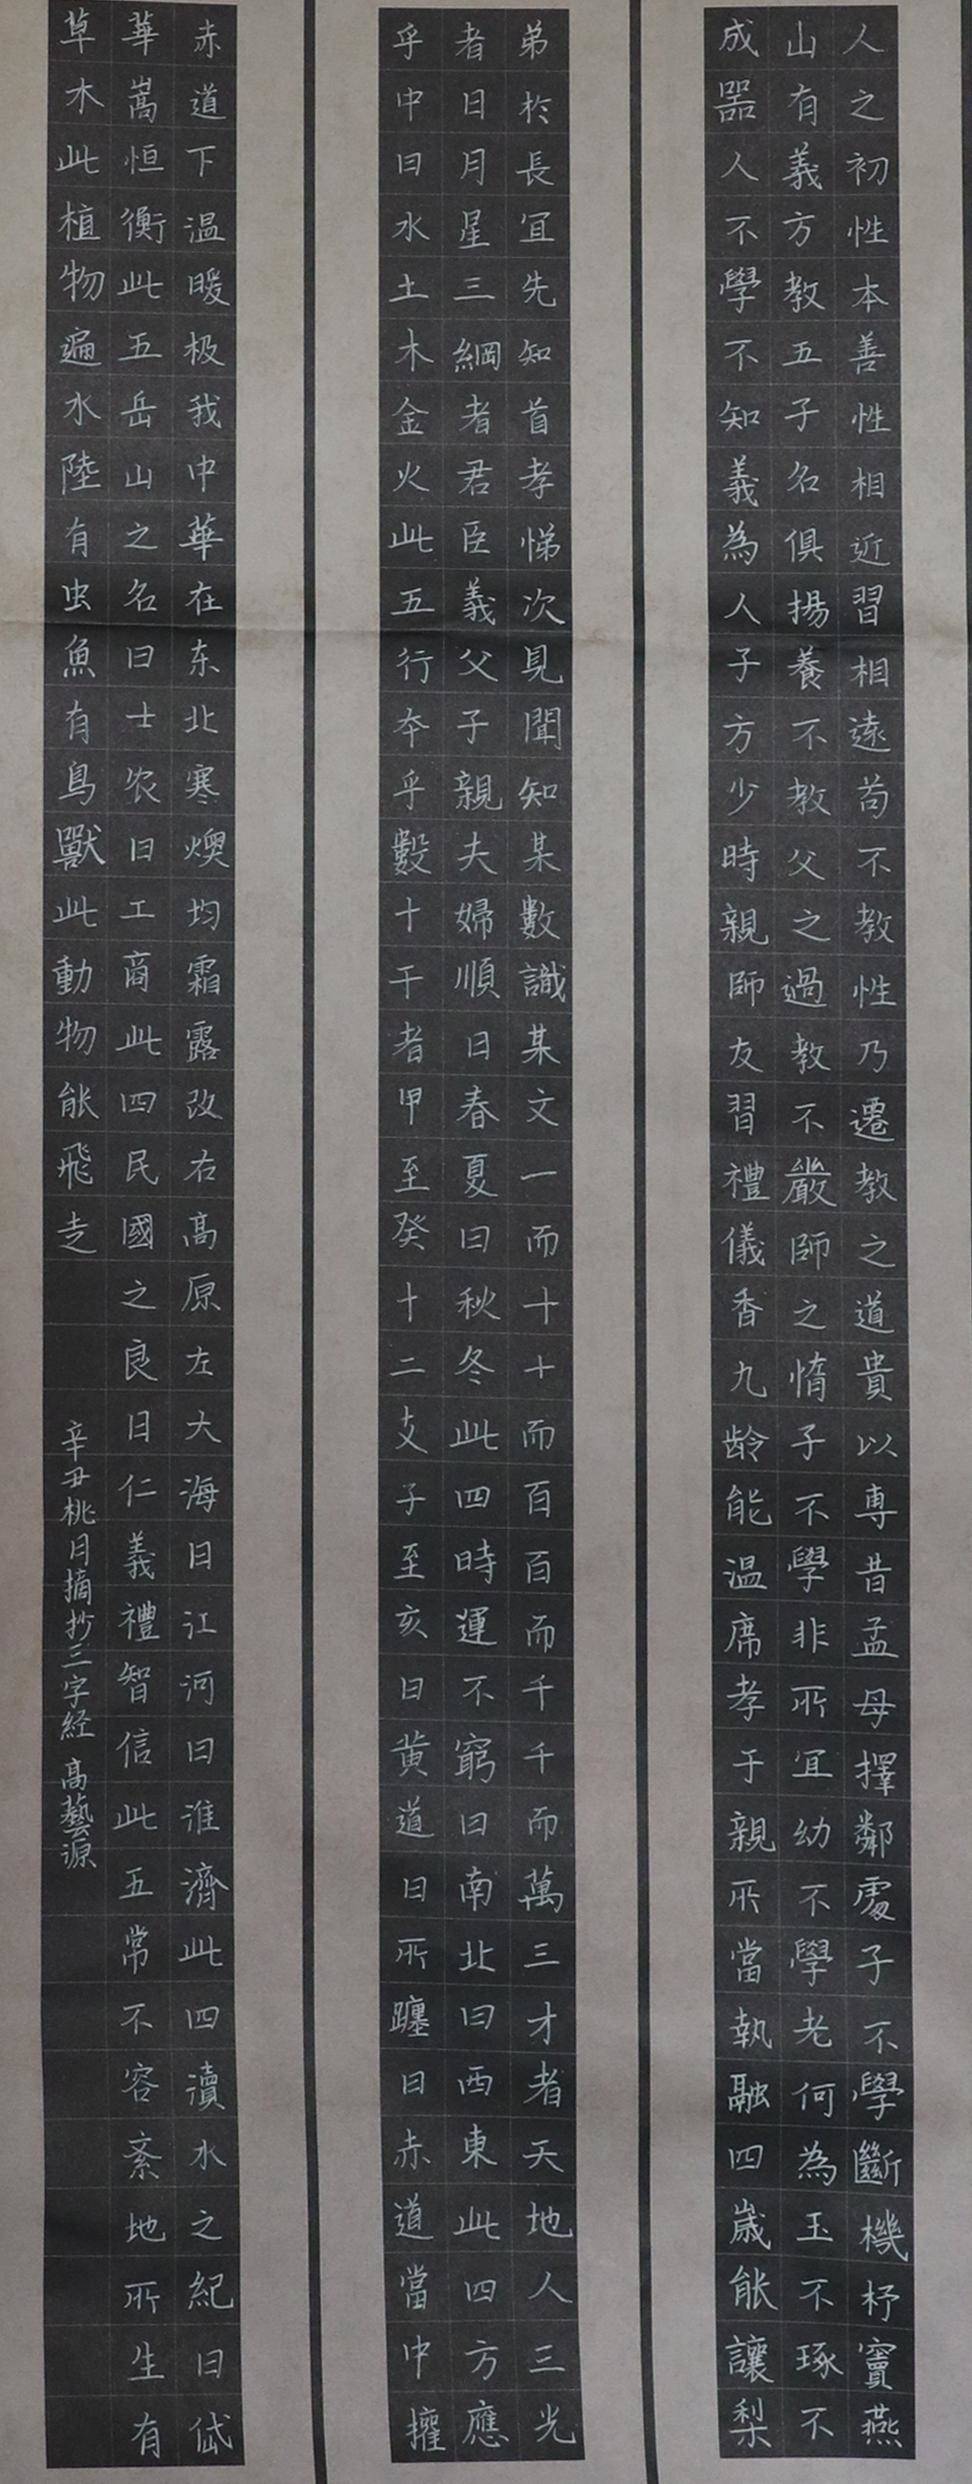 人之初性本善性相近習相遠苟不教性乃遷教之道貴以専昔孟母擇鄰處子不學斷機杼竇燕
山有義方教五子名俱揚養不教父之過教不嚴師之惰子不學非所宜幼不學老何為玉不琢不
成器人不學不知義為人子方少時親師友習禮儀香九龄能温席孝于親所當執融四歲能讓梨
弟於長宜先知首孝悌次見聞知某數識某文一而十十而百百而千千而萬三才者天地人三光
者日月星三綱者君臣義父子親夫婦順曰春夏曰秋冬此四時運不窮曰南北曰西東此四方應
乎中曰水土木金火此五行本乎數十干者甲至癸十二支子至亥曰黄道日所躔曰赤道當中擁
赤道下温暖极我中華在东北寒燠均霜露改右高原左大海曰江河曰淮濟此四瀆水之紀曰岱
華嵩恒衡此五岳山之名曰士农曰工商此四民國之良曰仁義禮智信此五常不容紊地所生有
草木此植物遍水陸有虫魚有鳥獸此動物能飛走
辛丑桃月摘抄三字経 高藝源